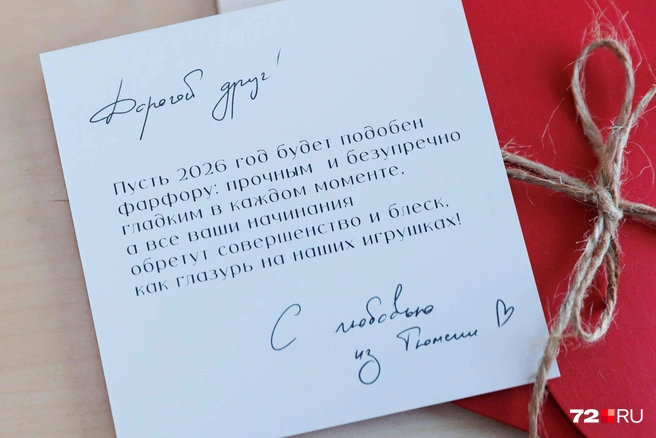 Дорогой друг!
Пусть 2026 год будет подобен
фарфору: прочным и безупречно
гладким в каждом моменте,
а все ваши начинания
обретут совершенство и блеск,
как глазурь на наших игрушках!
С любовью
из Тюмени
72.RU